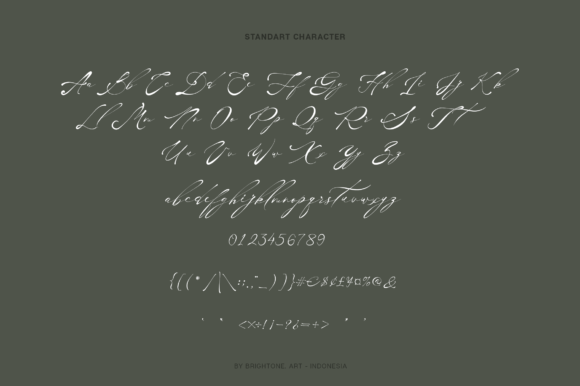 STANDART CHARACTER
Aa Bb Cc Dd Ee Ff Gg Hh Ii Jj Kk
Ll Mm Nn Oo Pp Qq Rr Ss Tt
Uu Vv Ww Xx Yy Zz
abcdefghijklmnopqrstuvwxyz
0123456789
<×÷!¡-?¿=+>
BY BRIGHTONE. ART - INDONESIA